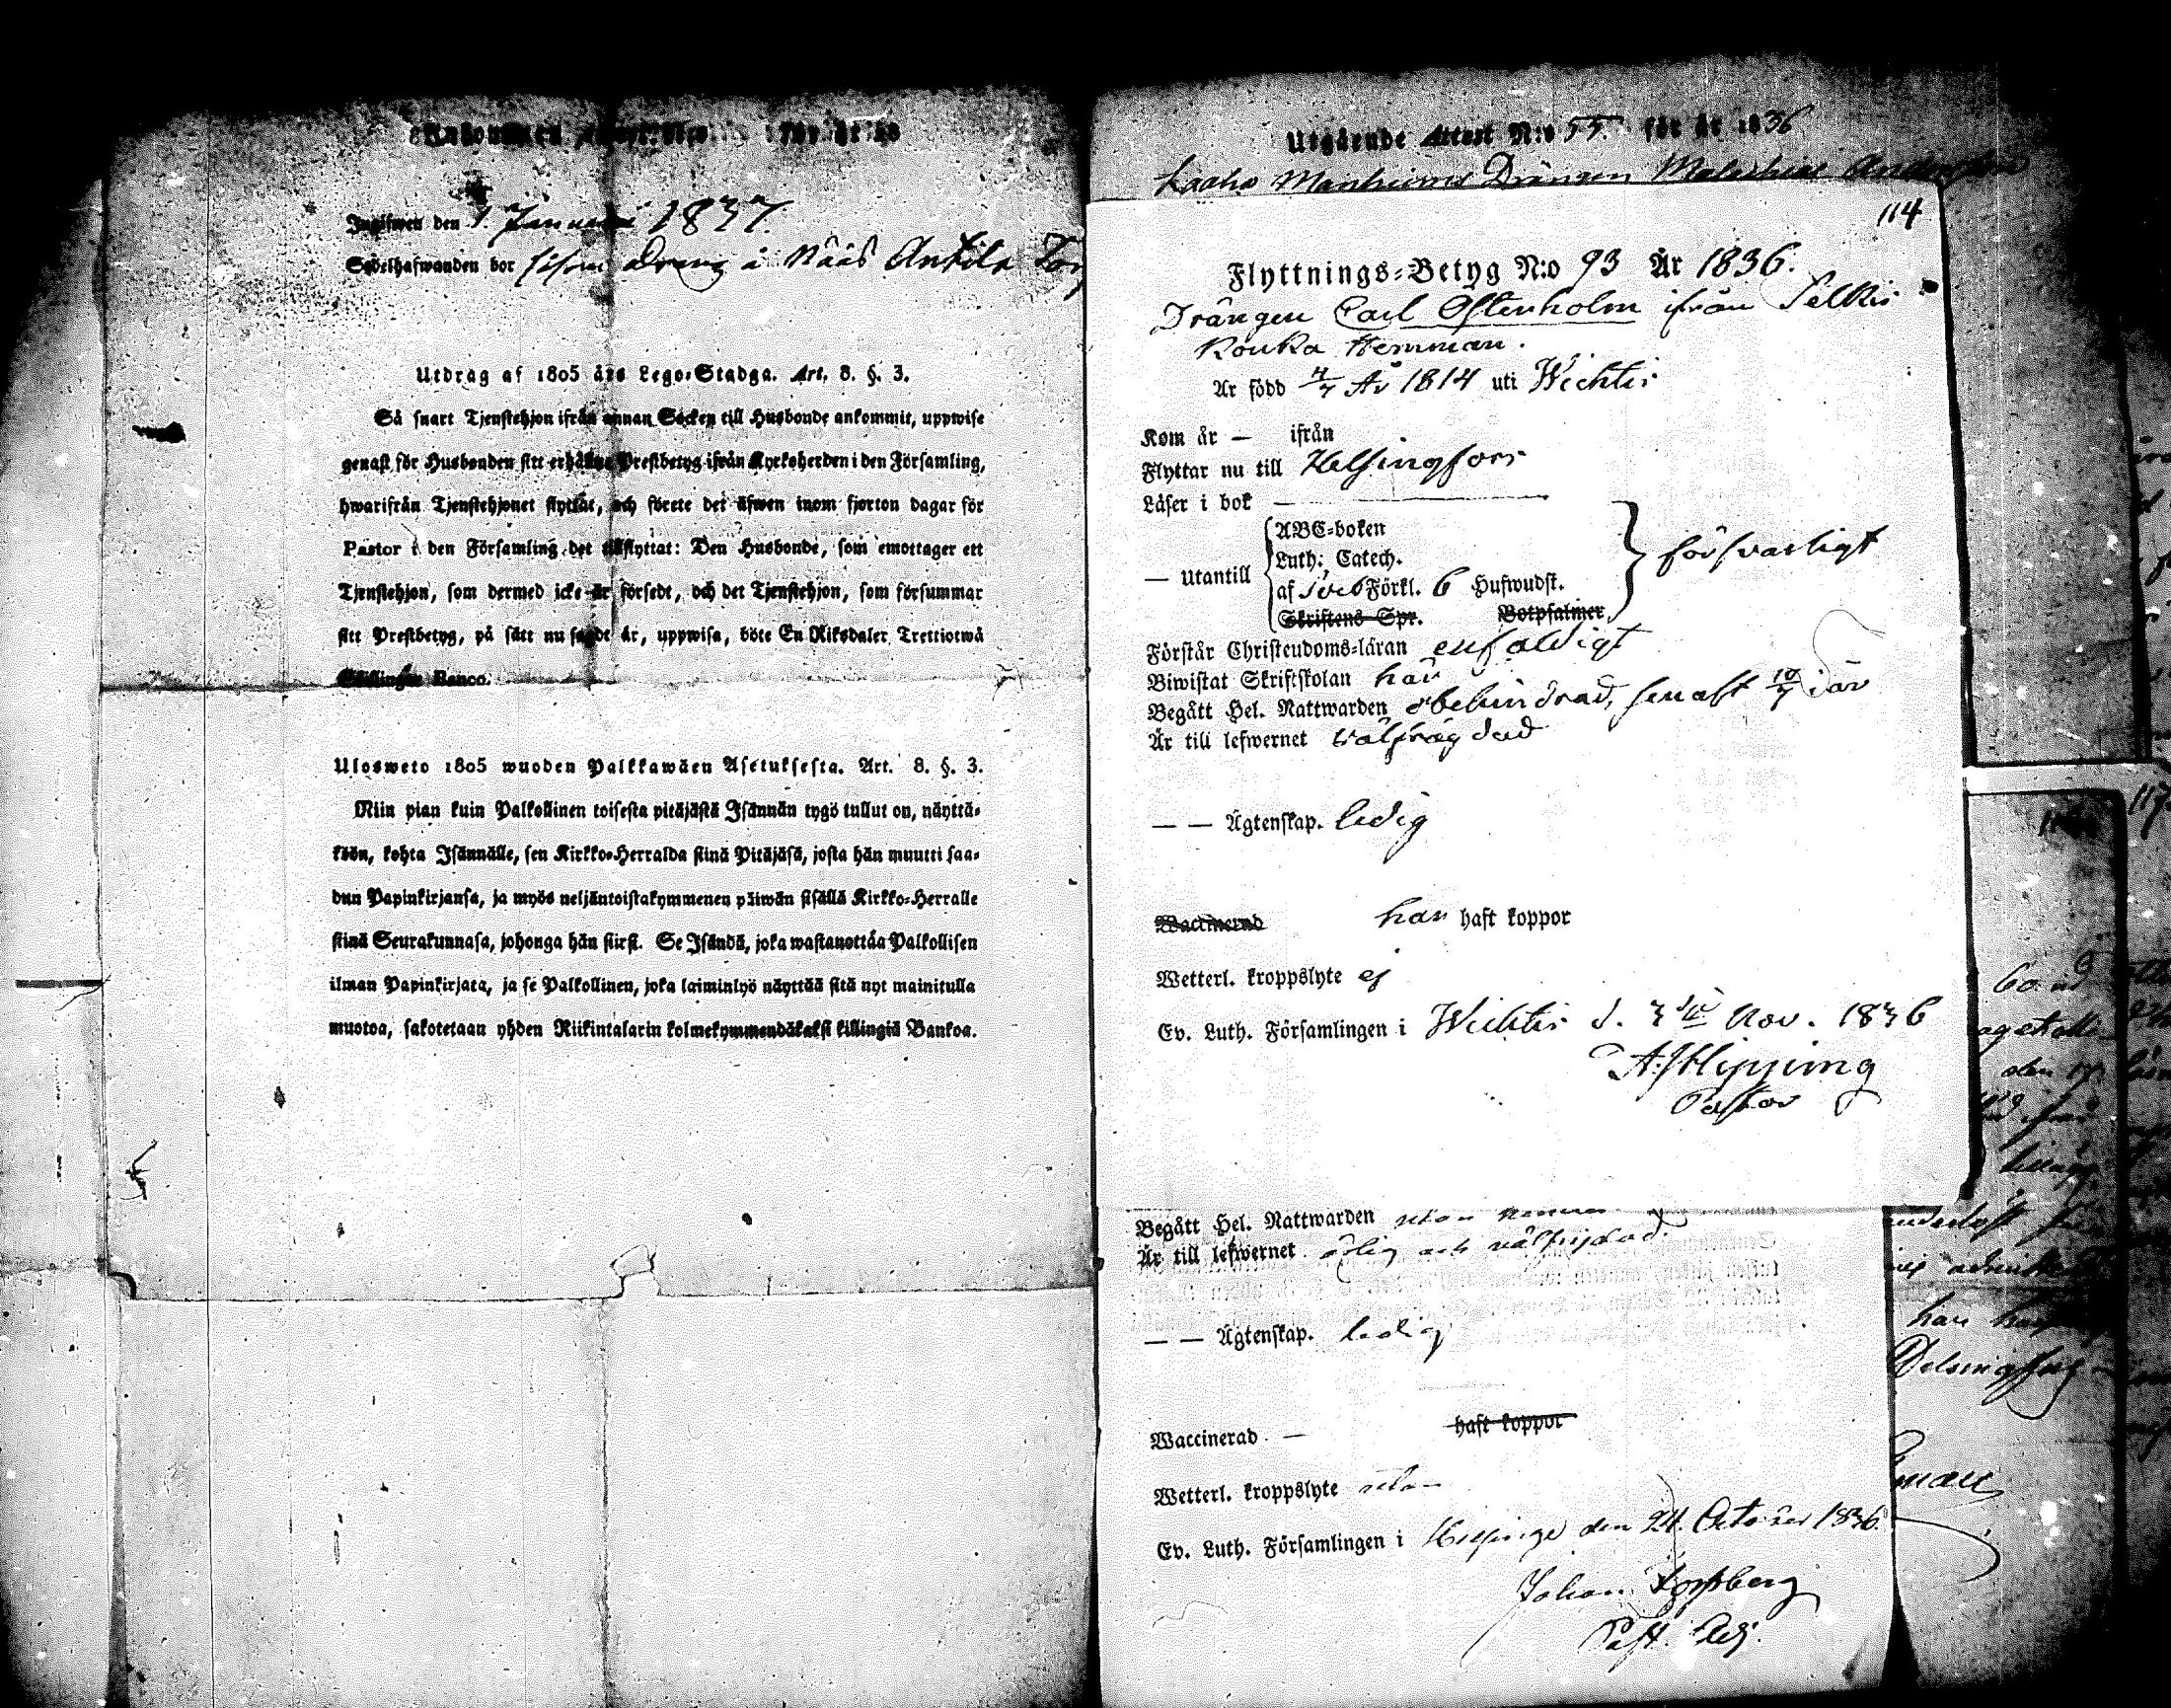 Ankommen Attest N:o för år 18
Ingifwen den 1. Januari 1837.
Sedelhafwanden bor såsom Dreng å Nääs Antila
Utdrag af 1805 års Lego-Stadga. Art. 8. §. 3.
Så snart Tjenstehjon ifrån annan Socken till Husbonde ankommit, uppwise
genast för Husbonden sitt erhållne Prestbetyg ifrån Kyrkoherden i den Församling,
hwarifrån Tjenstehjonet flyttat, och förete det äfwen inom fjorton dagar för
Pastor i den Församling det tillflyttat: Den Husbonde, som emottager ett
Tjenstehjon, som dermed icke är försedt, och det Tjenstehjon, som försummar
sitt Prestbetyg, på sätt nu sagdt är, uppwisa, böte En Riksdaler Trettiotwå
Skillingar Banco.
Ulosweto 1805 wuoden Palkkawäen Asetuksesta. Art. 8. §. 3.
Niin pian kuin Palkollinen toisesta pitäjästä Isännän tygö tullut on, näyttä-
köön, kohta Isännälle, sen Kirkko-Herralda siinä Pitäjäsä, josta hän muutti saa-
dun Papinkirjansa, ja myös neljäntoistakymmenen päiwän sisällä Kirkko-Herralle
siinä Seurakunnasa, johonga hän siirsi. Se Isändä, joka wastanottaa Palkollisen
ilman Papinkirjata, ja se Palkollinen, joka laiminlyö näyttää sitä nyt mainitulla
muotoa, sakotetaan yhden Riikintalarin kolmekymmendäkaksi killingiä Bankoa.
Utgående Attest N:o 55. för år 1836
Drängen
114
Flyttnings-Betyg N:o 93 År 1836.
Drängen Carl Östenholm ifrån Selkis
Kouka Hemman.
Är född 4/7 År 1814 uti Wichtis
Kom år — ifrån
Flyttar nu till Helsingfors
Läser i bok —
— Utantill
ABC-boken
Luth. Catech.
af Sveb Förkl. 6 Hufwudst.
Skriftens Spr. Botpsalmer
försvarligt
Förstår Christendoms-läran enfaldigt
Biwistat Skriftskolan här
Begått Hel. Nattwarden obehindrad, senast 10/7 där
Är till lefwernet välfrägdad
— — Ägtenskap. ledig
Waccinerad har haft koppor
Wetterl. kroppslyte ej
Ev. Luth. Församlingen i Wichtis d. 3die Nov. 1836
A. J. Hipping
Pastor
Begått Hel. Nattwarden
Är till lefwernet ärlig och välfrejdad.
— — Ägtenskap. ledig
Waccinerad — haft koppor
Wetterl. kroppslyte utan
Ev. Luth. Församlingen i Helsinge den 24. October 1836.
Johan Forssberg
Past. Adj.
117